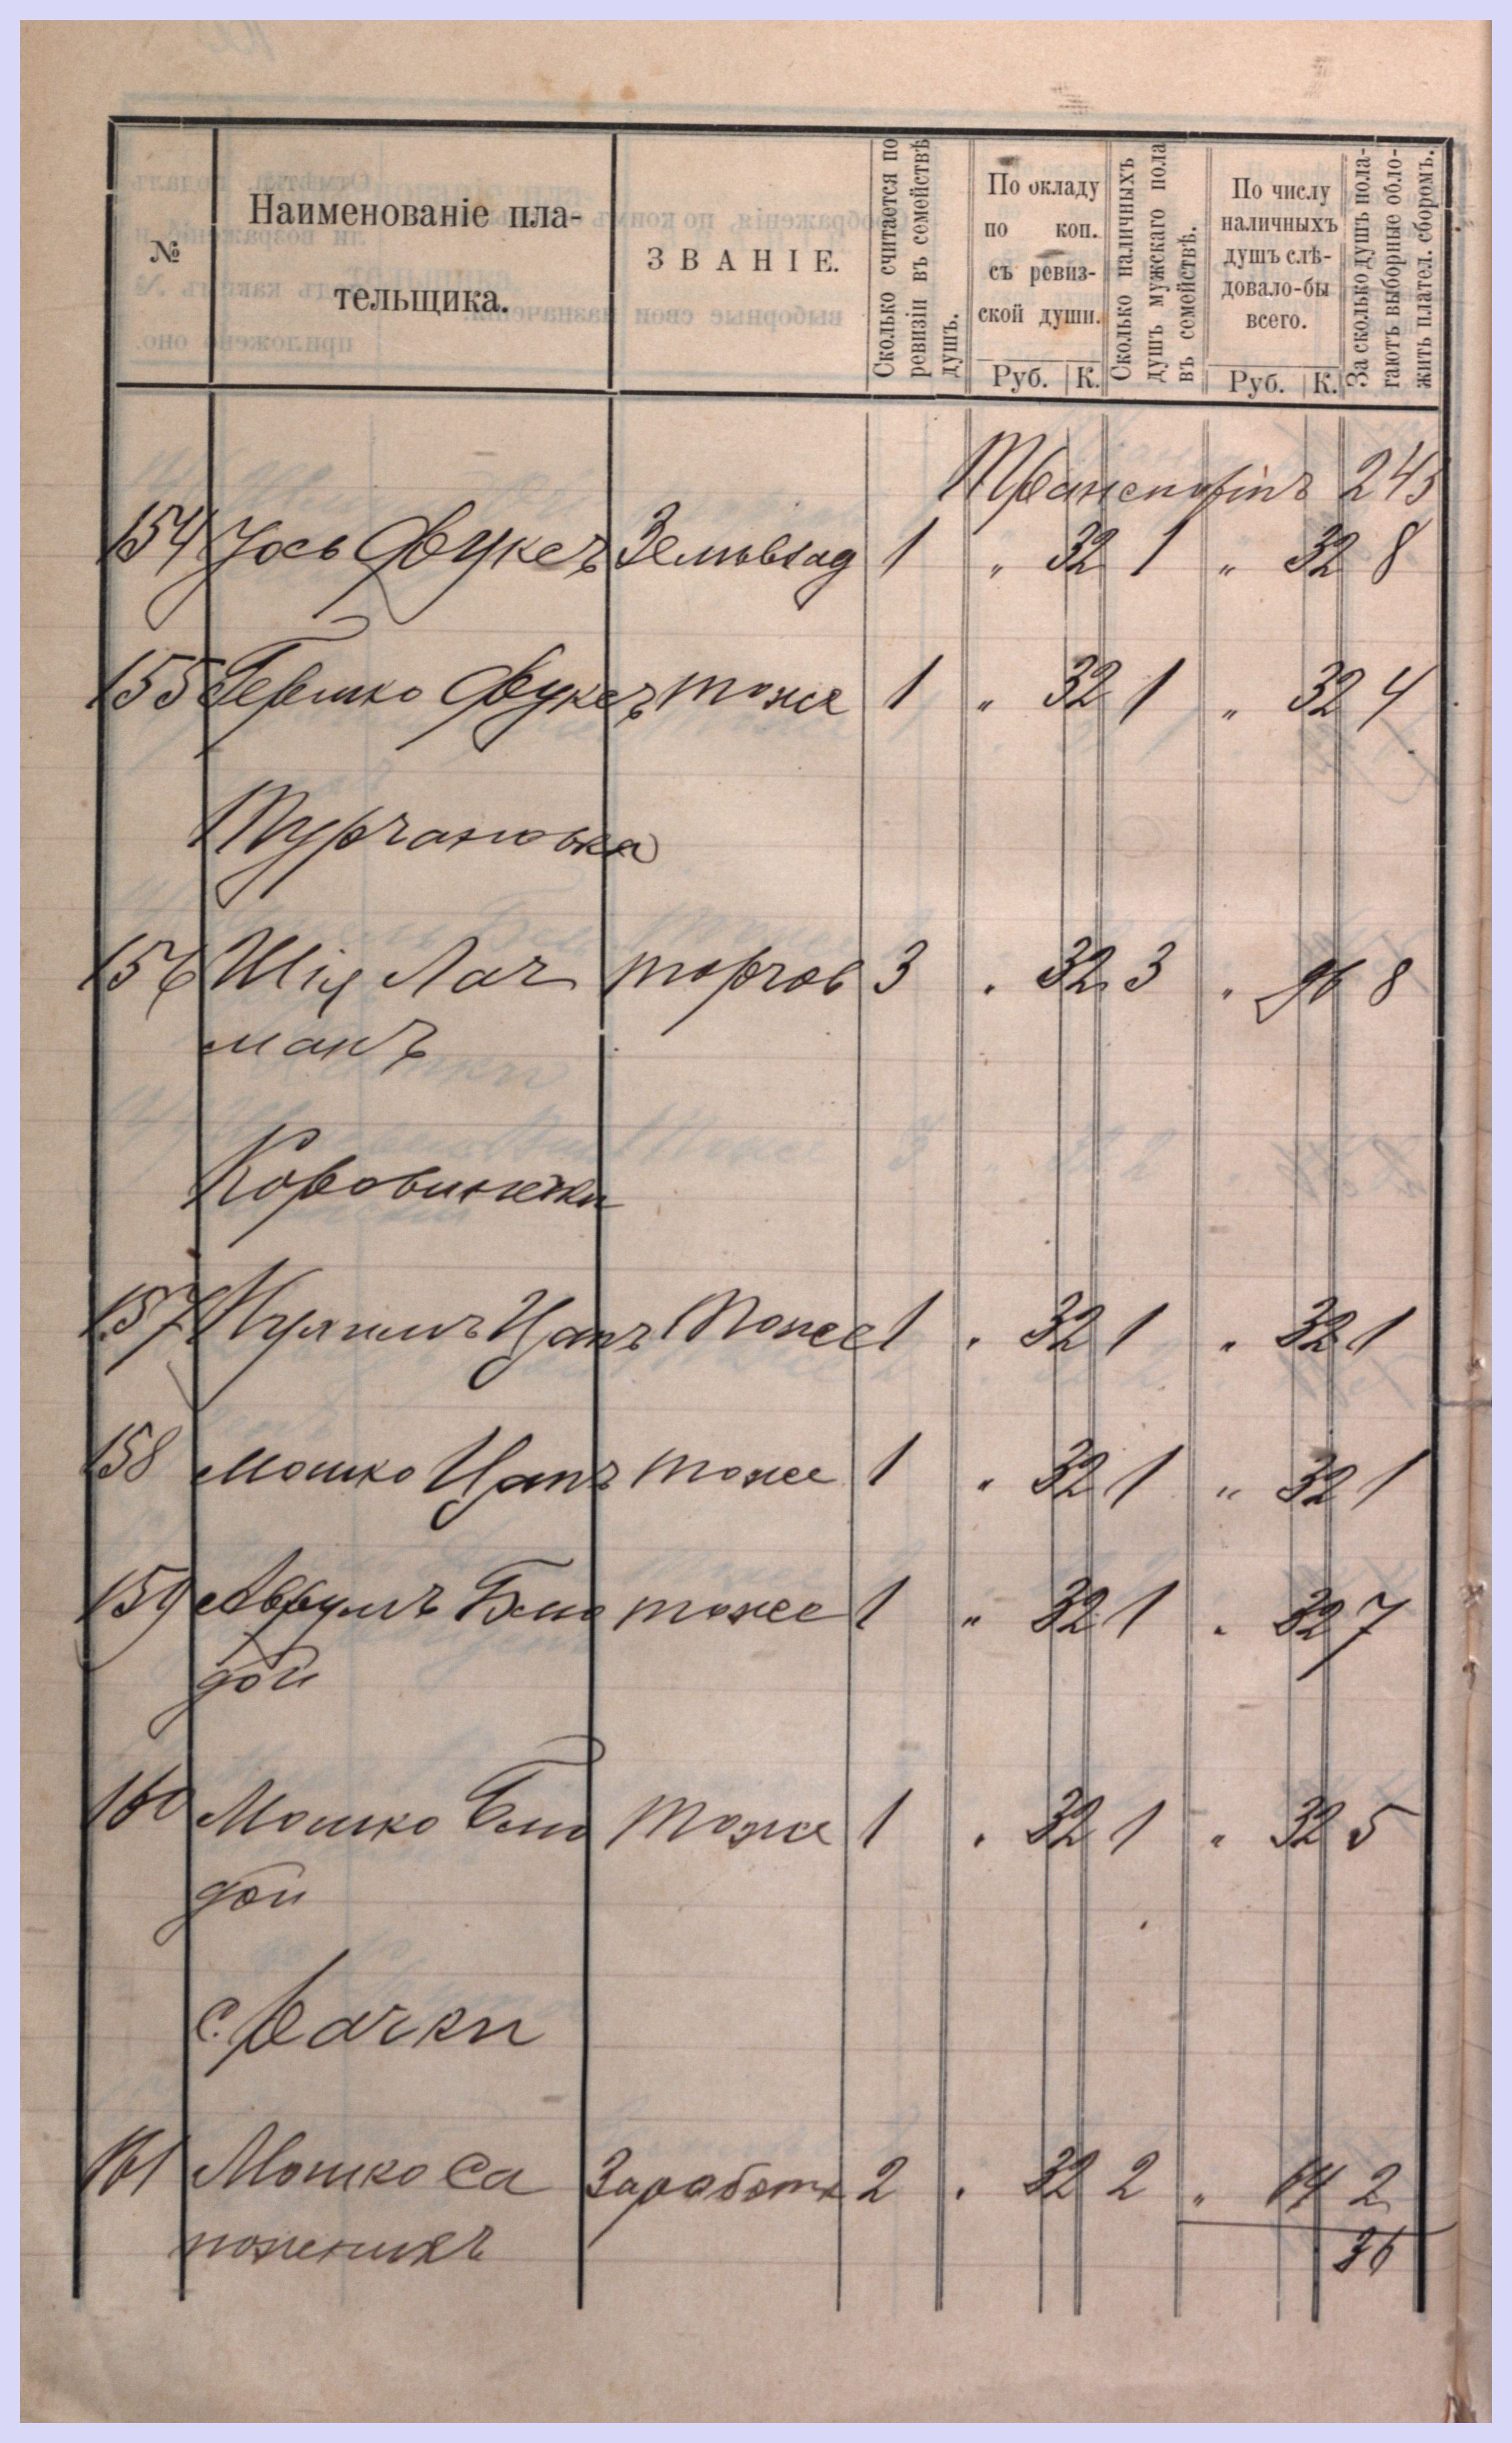 №
Наименованіе пла-
тельщика.
ЗВАНІЕ.
Сколько считается по
ревизіи въ семействѣ
душъ.
По окладу
по коп.
съ ревиз-
ской души.
Руб. К.
Сколько наличныхъ
душъ мужскаго пола
въ семействѣ.
По числу
наличныхъ
душъ слѣ-
довало-бы
всего.
Руб. К.
За сколько душъ пола-
гаютъ выборные обло-
жить плател. сборомъ.
Транспортъ 243
154 Іось Фуксъ 1 „ 32 1 „ 32 8
155 Гершко Фуксъ тоже 1 „ 32 1 „ 32 4
Турчановка
156 Шіи Лач торгов 3 „ 32 3 „ 96 8
манъ
Коровинечки
157 Цапъ тоже 1 „ 32 1 „ 32 1
158 Мошко Цапъ тоже 1 „ 32 1 „ 32 1
159 Аврумъ Бѣло тоже 1 „ 32 1 „ 32 7
дой
160 Мошко тоже 1 „ 32 1 „ 32 5
дой
с. Рачки
161 Мошко Са Заработк 2 „ 32 2 „ 64 2
пожникъ
36